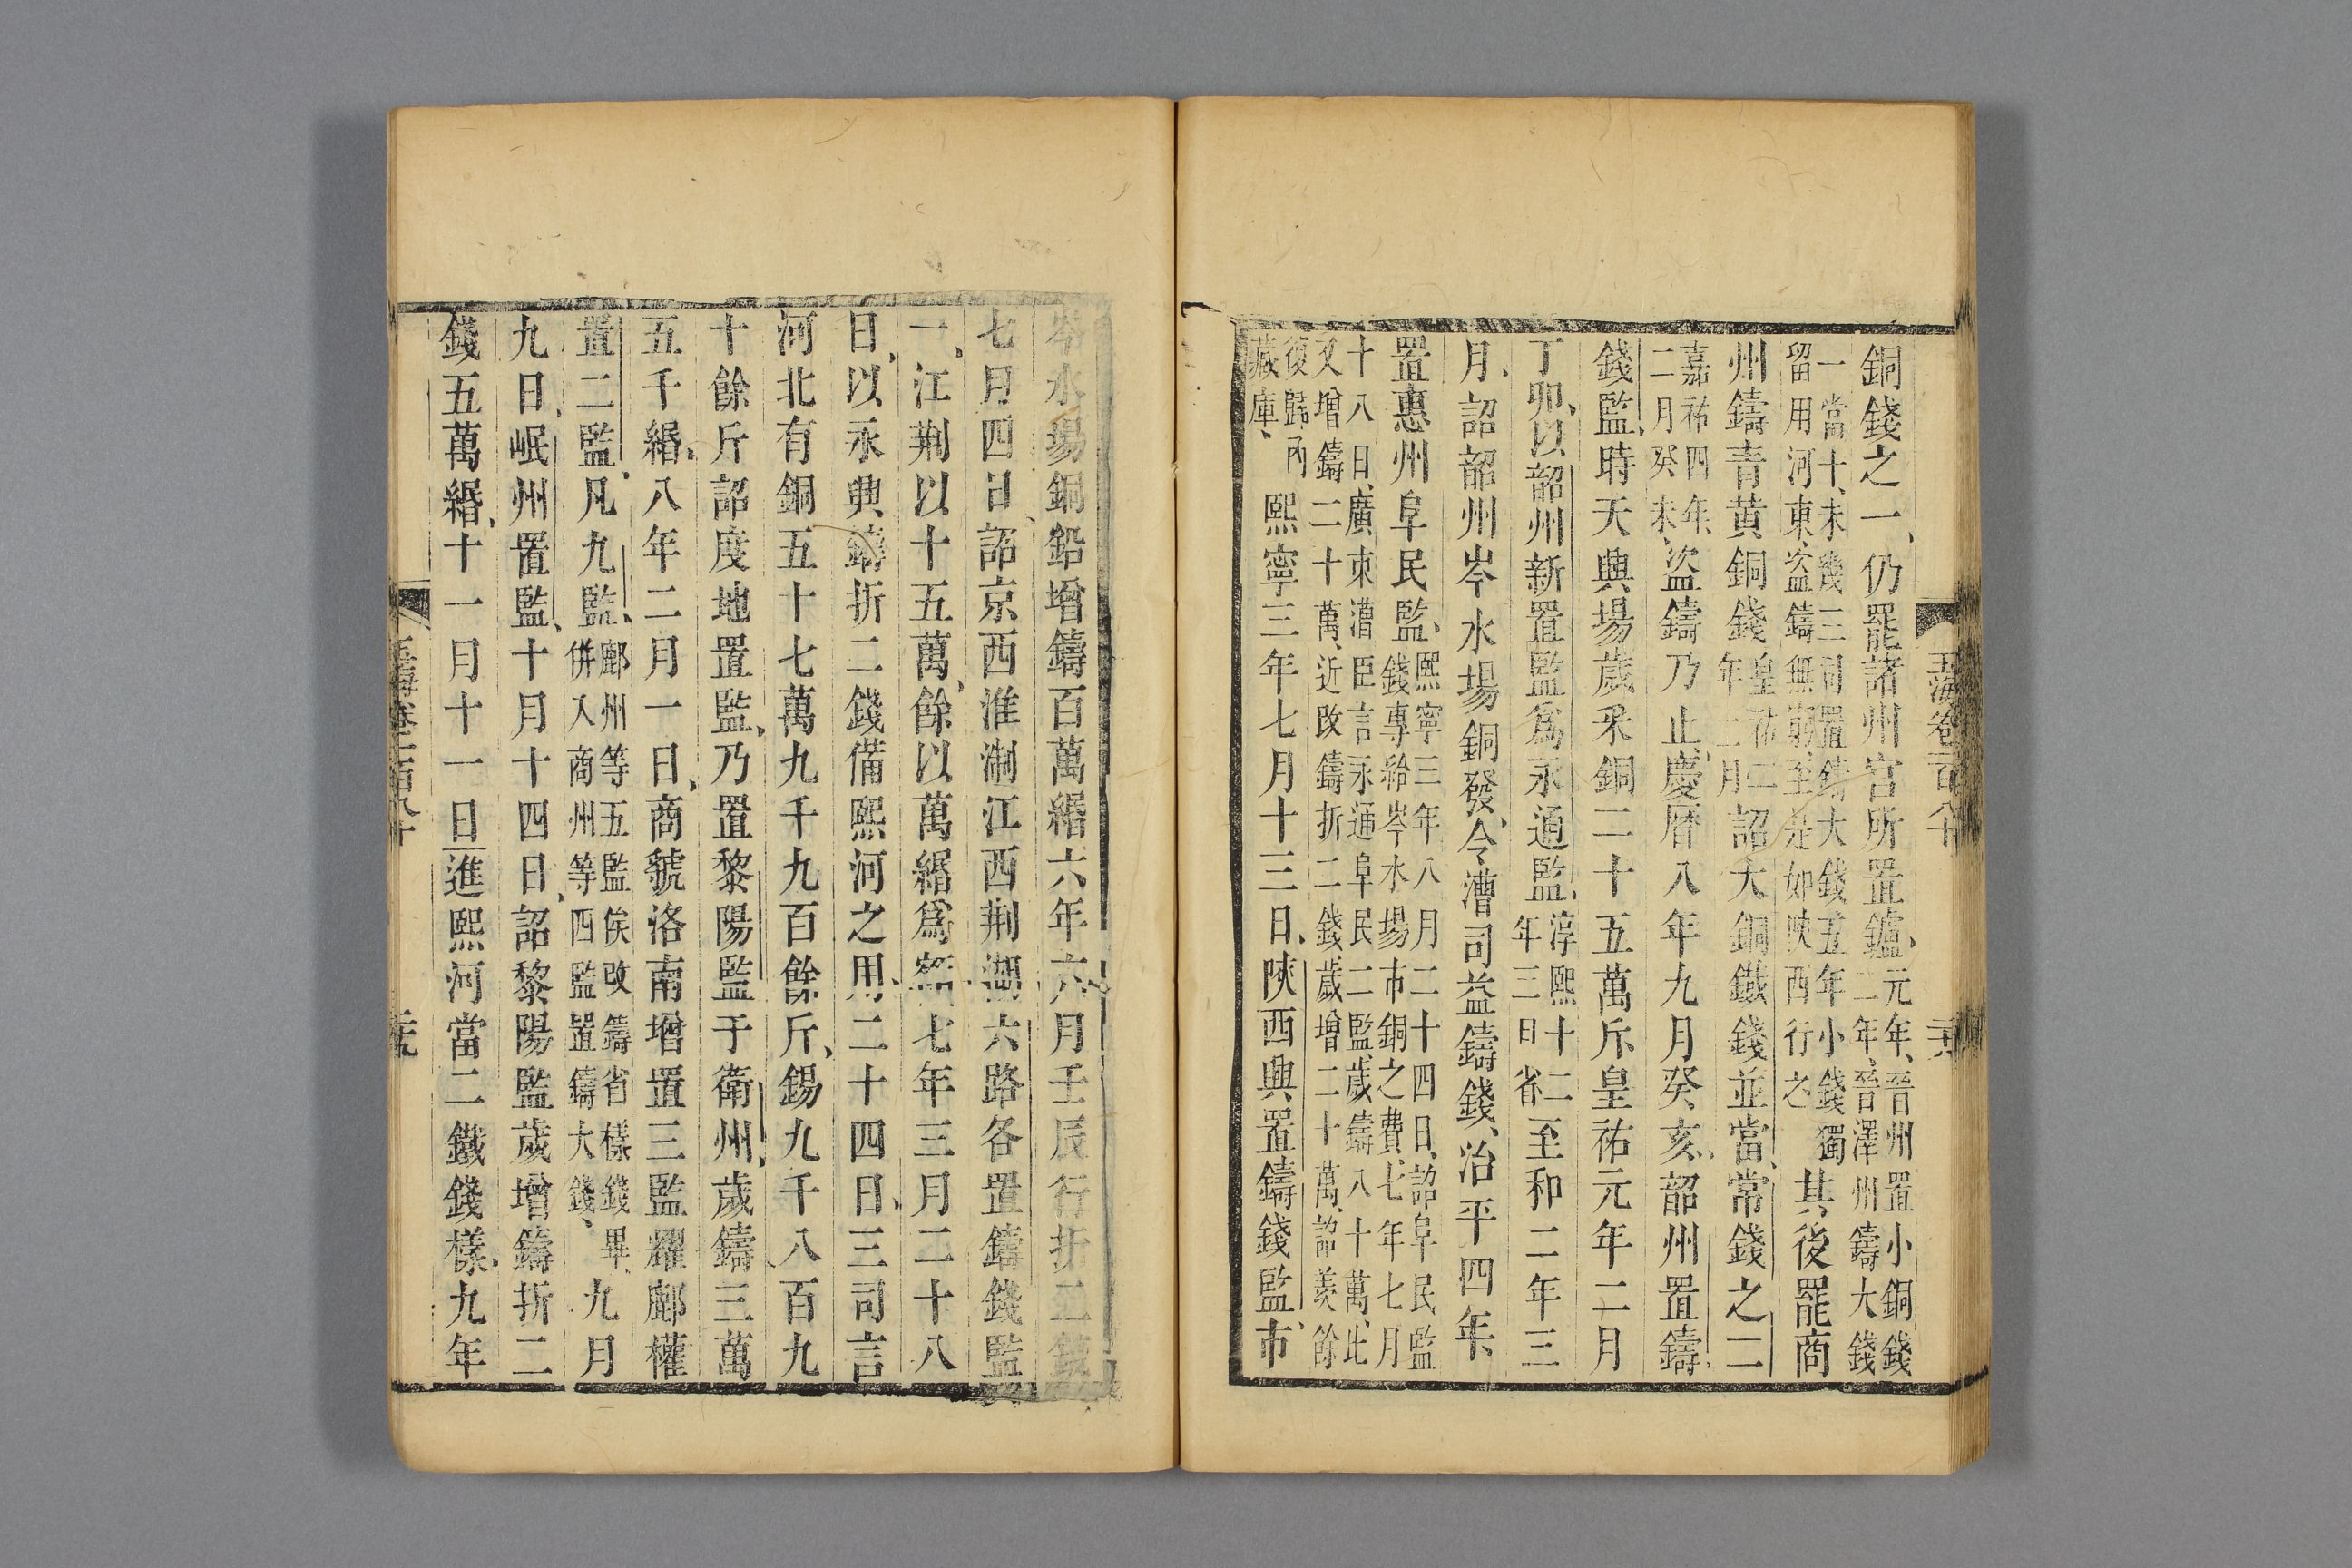 銅錢之一、仍罷諸州宮所置鑪、元年、晉州置小銅錢二年、晉澤州鑄大錢
一當十、未幾三司置鑄大錢五年小錢獨留用河東、盜鑄無窮、至是如陝西行之其後罷商
州鑄青黃銅錢皇祐二年二月詔大銅鐵錢並當、常錢之二
嘉祐四年、二月癸未、盜鑄乃止、慶曆八年九月癸亥、韶州置鑄
錢監、時天興場歲釆銅二十五萬斤、皇祐元年二月
丁卯、以韶州新置監爲永通監、淳熙十二年三日省至和二年三
月、詔韶州岑水場銅發、令漕司益鑄錢、治平四年
置惠州阜民監、熙寧三年八月二十四日、詔阜民監錢專給岑水場市銅之費、七年七月
十八日、廣東漕臣言永通阜民二監、歲鑄八十萬、比又增鑄二十萬、近改鑄折二錢、歲增二十萬、詔羨餘
復歸內藏庫、熙寧三年七月十三日、陝西興置鑄錢監、市
岑水場銅鉛增鑄百萬緡、六年六月壬辰行折二錢
七月四日、詔京西淮浙江西荆湖六路各置鑄錢監
一、江荆以十五萬、餘以萬緡爲額七年三月二十八
日、以永興鑄折二錢備熙河之用、二十四日、三司言
河北有銅五十七萬九千九百餘斤、錫九千八百九
十餘斤詔度地置監、乃置黎陽監于衛州、歲鑄三萬
五千緡、八年二月一日、商虢洛南增置三監耀鄜權
置二監、凡九監、鄜州等五監俟改鑄省樣錢畢併入商州等四監置鑄大錢、九月
九日、岷州置監、十月十四日、詔黎陽監歲增鑄折二
錢五萬緡、十一月十一日進熙河當二鐵錢樣、九年